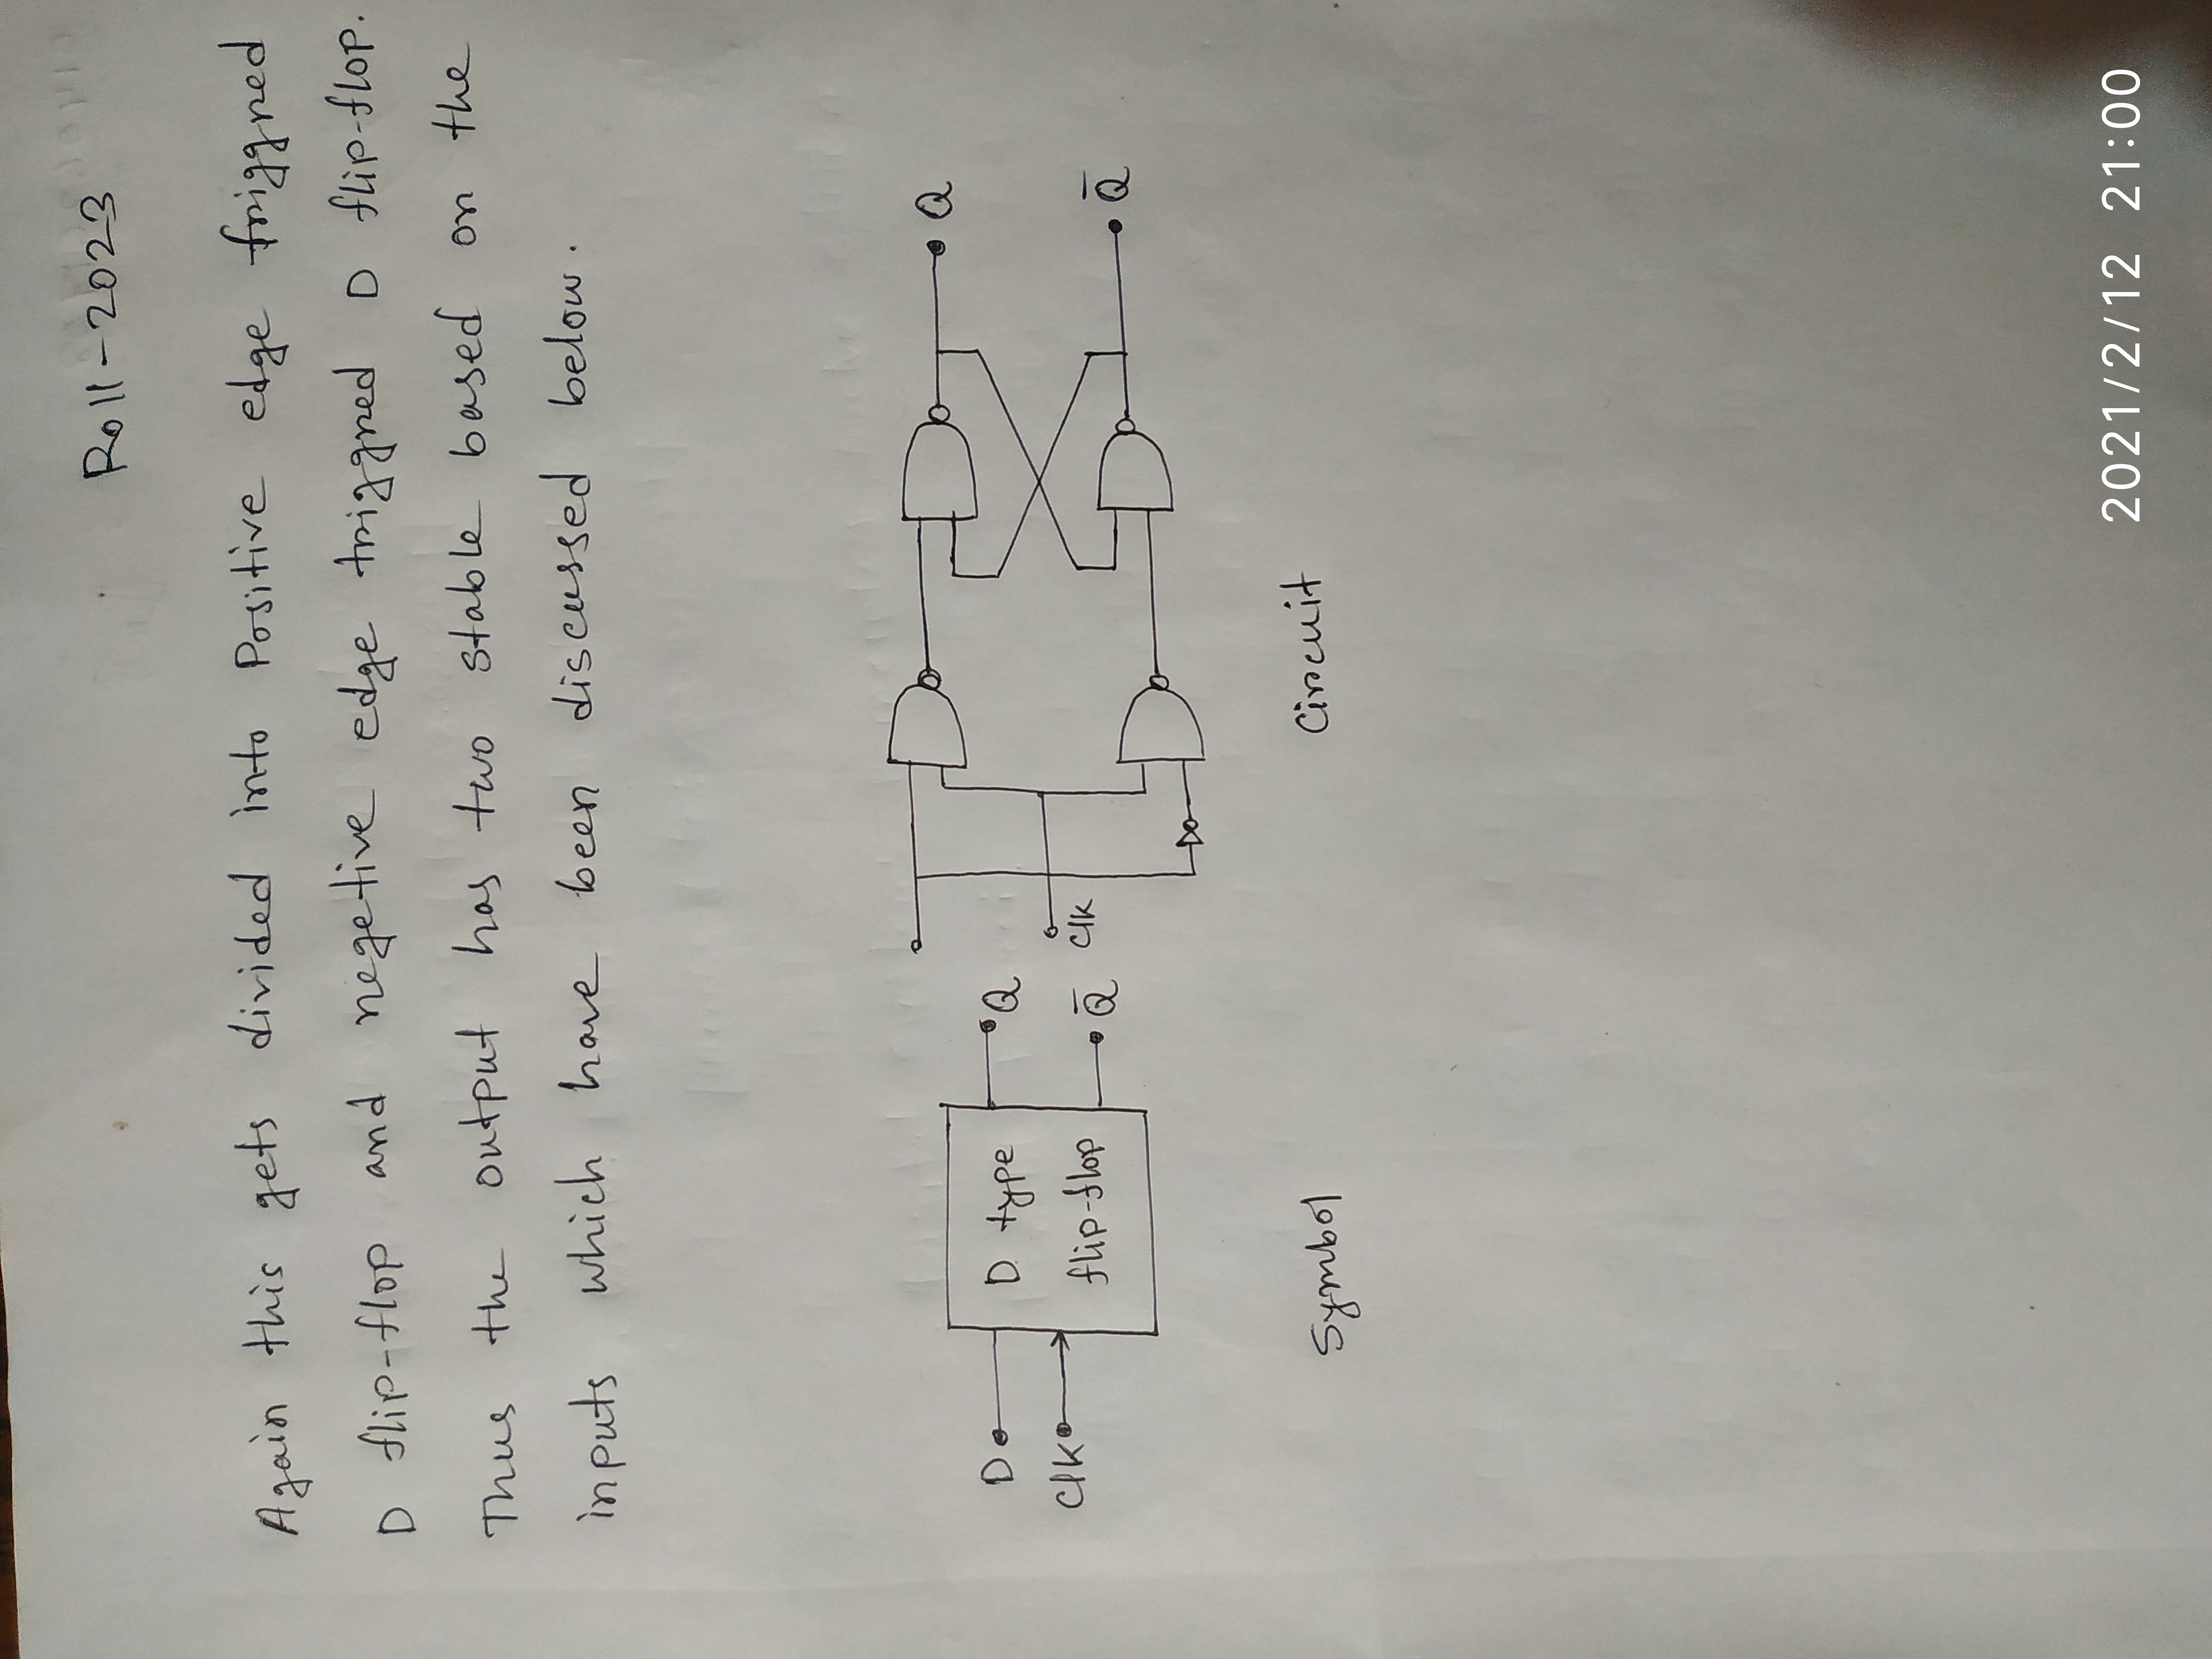 Roll-2023
Again this gets divided into Positive edge friggred
D flip-flop and negetive edge triggred D flip-flop.
Thus the output has two stable based on the
inputs which have been discussed below.
D
Clk
D type
flip-flop
Q
Q̄
Clk
Q
Q̄
Symbol
Circuit
2021/2/12 21:00